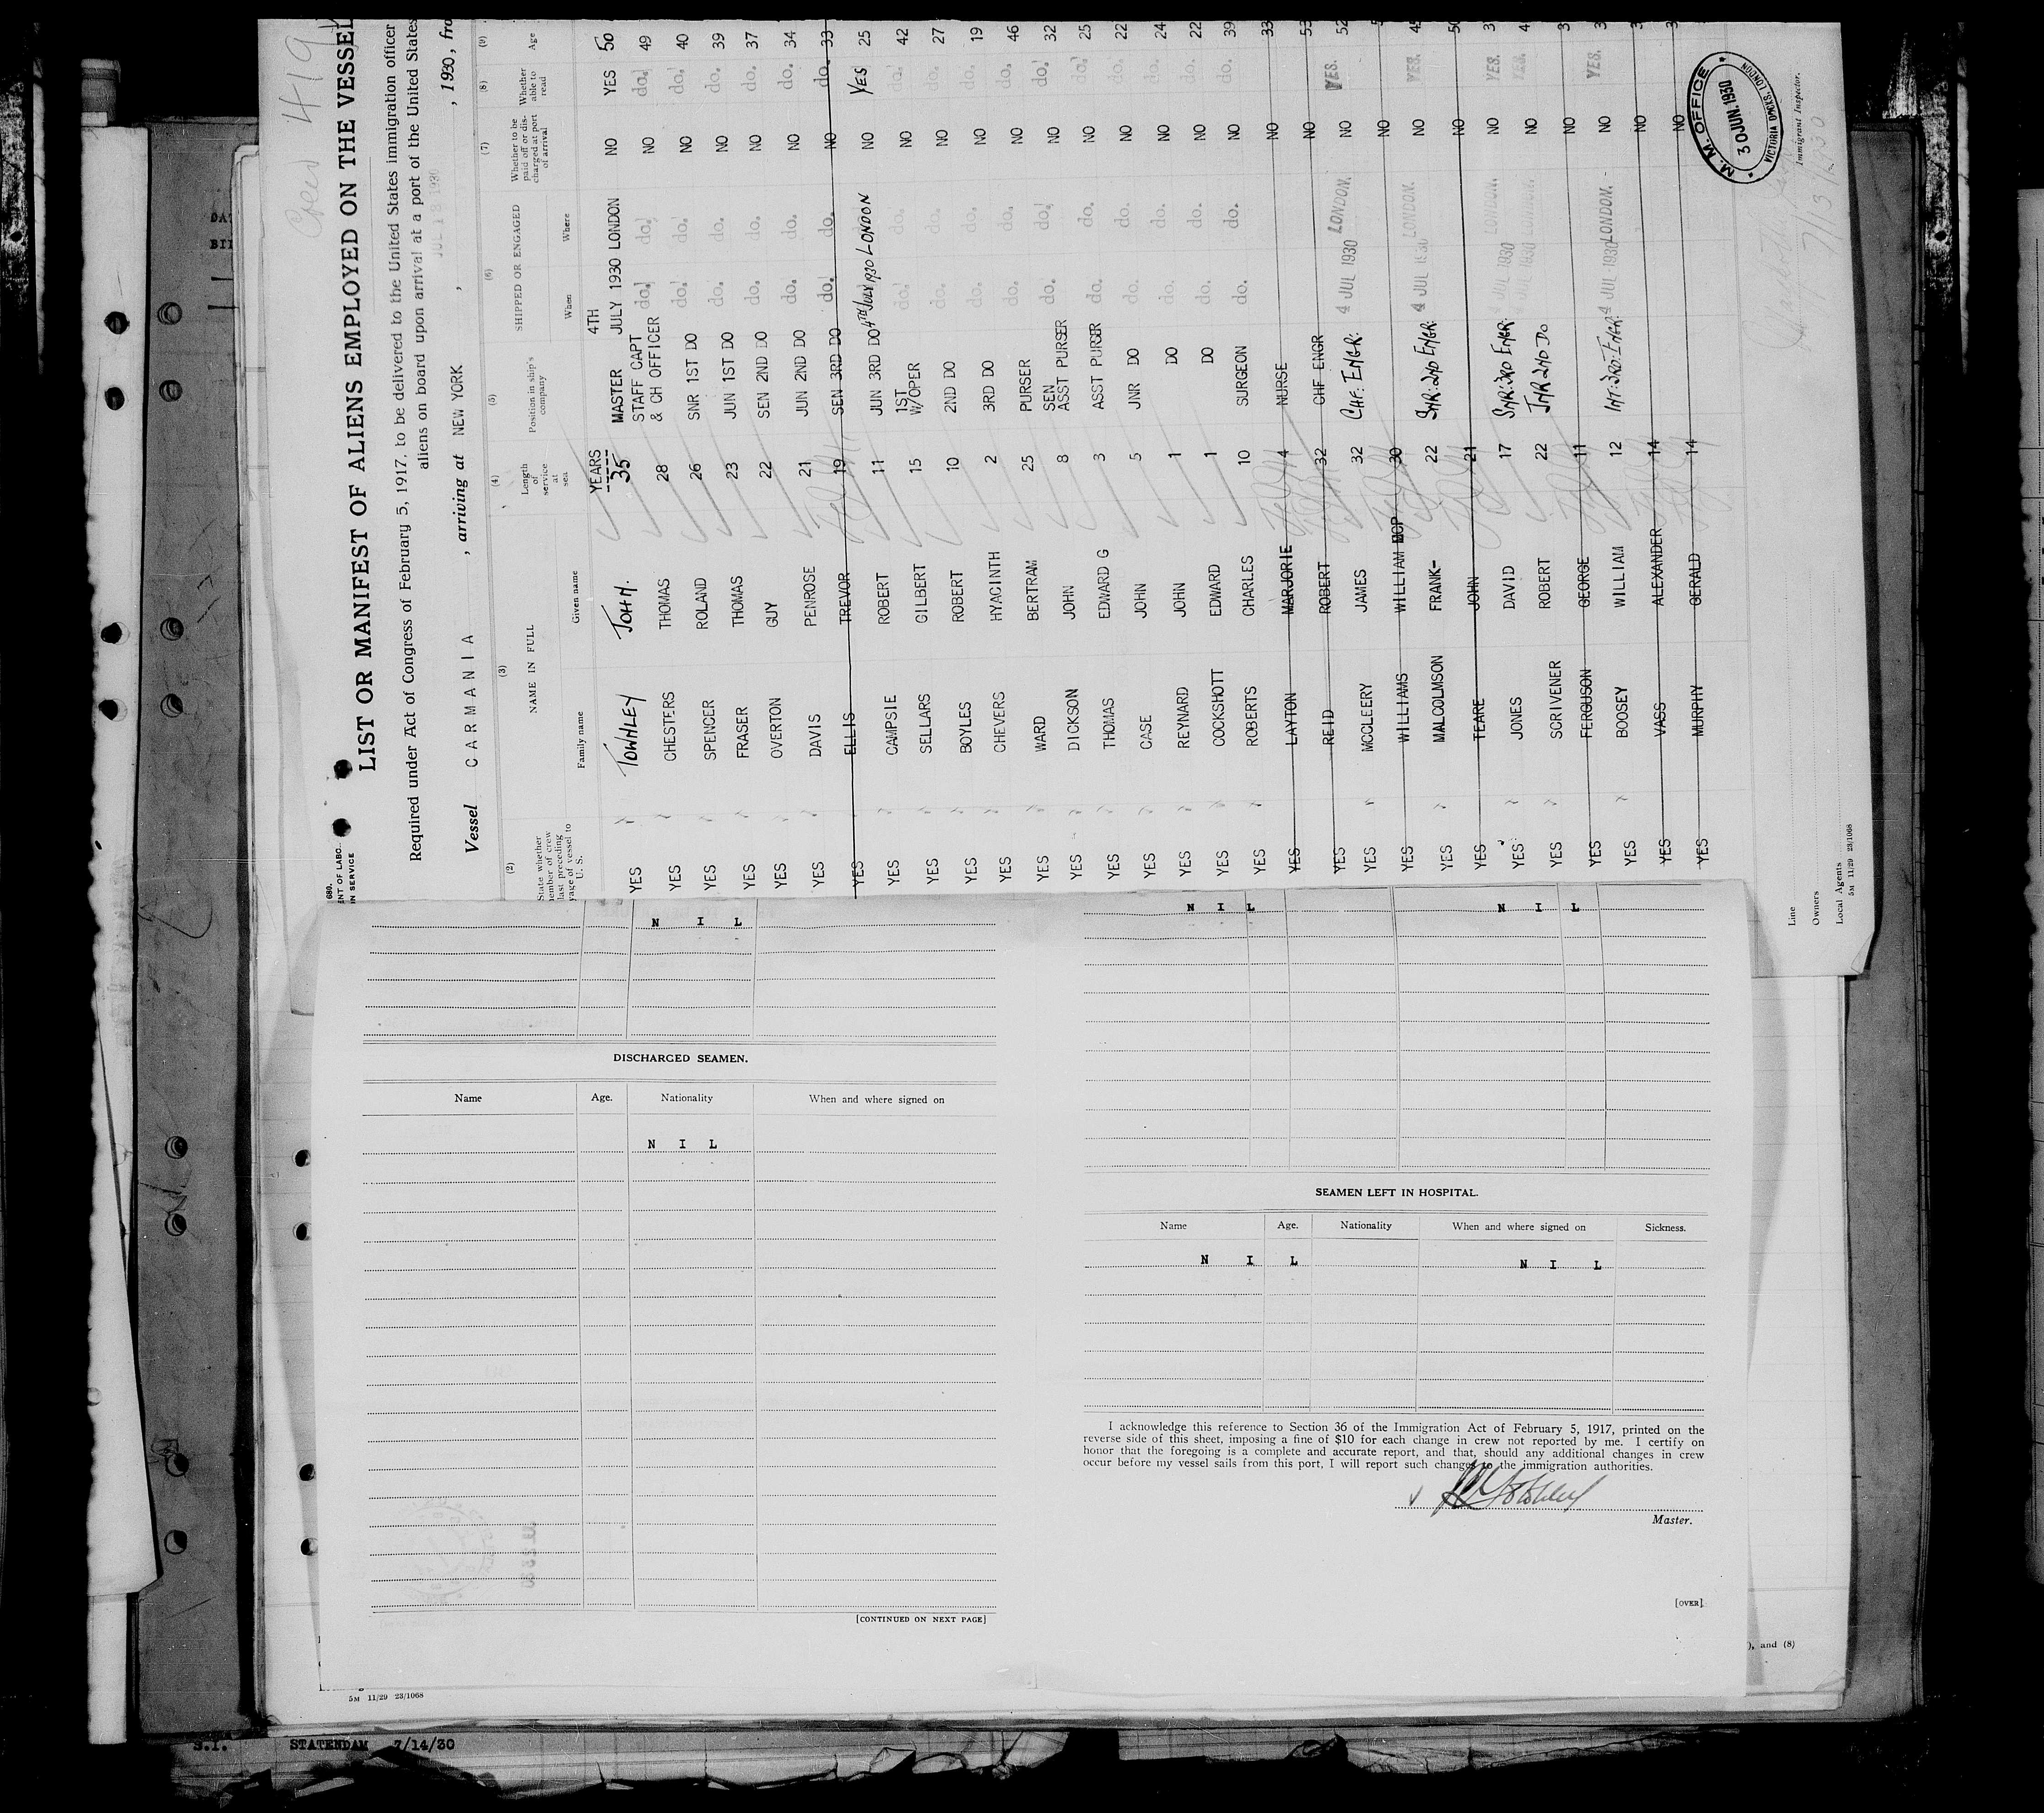 Crew 419
LIST OR MANIFEST OF ALIENS EMPLOYED ON THE VESSEL
Required under Act of Congress of February 5, 1917, to be delivered to the United States immigration officer
aliens on board upon arrival at a port of the United States
Vessel CARMANIA , arriving at NEW YORK , , 1930, fro
680.
ENT OF LABO
N SERVICE
(2) (3) (4) (5) (6) (7) (8) (9)
State whether member of crew last preceding voyage of vessel to U. S.
NAME IN FULL
Family name Given name
Length of service at sea
Position in ship's company
SHIPPED OR ENGAGED
When Where
Whether to be paid off or discharged at port of arrival
Whether able to read
Age
YEARS 4TH
YES TOWNLEY JOHN. 35 MASTER JULY 1930 LONDON NO YES 50
YES CHESTERS THOMAS 28 STAFF CAPT & CH OFFICER do. do. NO do. 49
YES SPENCER ROLAND 26 SNR 1ST DO do. do. NO do. 40
YES FRASER THOMAS 23 JUN 1ST DO do. do. NO do. 39
YES OVERTON GUY 22 SEN 2ND DO do. do. NO do. 37
YES DAVIS PENROSE 21 JUN 2ND DO do. do. NO do. 34
YES ELLIS TREVOR 19 SEN 3RD DO do. do. NO do. 33
YES CAMPSIE ROBERT 11 JUN 3RD DO 4TH JULY 1930 LONDON NO YES 25
YES SELLARS GILBERT 15 1ST W/OPER do. do. NO do. 42
YES BOYLES ROBERT 10 2ND DO do. do. NO do. 27
YES CHEVERS HYACINTH 2 3RD DO do. do. NO do. 19
YES WARD BERTRAM 25 PURSER do. do. NO do. 46
YES DICKSON JOHN 8 SEN ASST PURSER do. do. NO do. 32
YES THOMAS EDWARD G 3 ASST PURSER do. do. NO do. 25
YES CASE JOHN 5 JNR DO do. do. NO do. 22
YES REYNARD JOHN 1 DO do. do. NO do. 24
YES COCKSHOTT EDWARD 1 DO do. do. NO do. 22
YES ROBERTS CHARLES 10 SURGEON do. do. NO do. 39
YES LAYTON MARJORIE 4 NURSE NO 33
YES REID ROBERT 32 CHF ENGR NO 53
YES MCCLEERY JAMES 32 CHF. ENGR. 4 JUL 1930 LONDON. NO YES. 52
YES WILLIAMS WILLIAM 30 NO
YES MALCOLMSON FRANK 22 SNR. 2ND ENGR. 4 JUL 1930 LONDON. NO YES.
YES TEARE JOHN 21 NO
YES JONES DAVID 17 SNR. 3RD ENGR. 4 JUL 1930 LONDON. NO YES.
YES SCRIVENER ROBERT 22 JNR 2ND DO 4 JUL 1930 LONDON. NO YES.
YES FERGUSON GEORGE 11 NO
YES BOOSEY WILLIAM 12 INT. 3RD. ENGR. 4 JUL 1930 LONDON. NO YES.
YES VASS ALEXANDER 14 NO
YES MURPHY GERALD 14 NO
M. M. OFFICE
30 JUN. 1930
VICTORIA DOCKS, LONDON
Immigrant Inspector.
7/13/1930
Line
Owners
Local Agents
5M 11/29 23/1068
N I L
DISCHARGED SEAMEN.
Name Age. Nationality When and where signed on
N I L
[CONTINUED ON NEXT PAGE]
5M 11/29 23/1068
N I L N I L
SEAMEN LEFT IN HOSPITAL.
Name Age. Nationality When and where signed on Sickness.
N I L N I L
I acknowledge this reference to Section 36 of the Immigration Act of February 5, 1917, printed on the
reverse side of this sheet, imposing a fine of $10 for each change in crew not reported by me. I certify on
honor that the foregoing is a complete and accurate report, and that, should any additional changes in crew
occur before my vessel sails from this port, I will report such changes to the immigration authorities.
Master.
[OVER]
), and (8)
S.I. STATENDAM 7/14/30